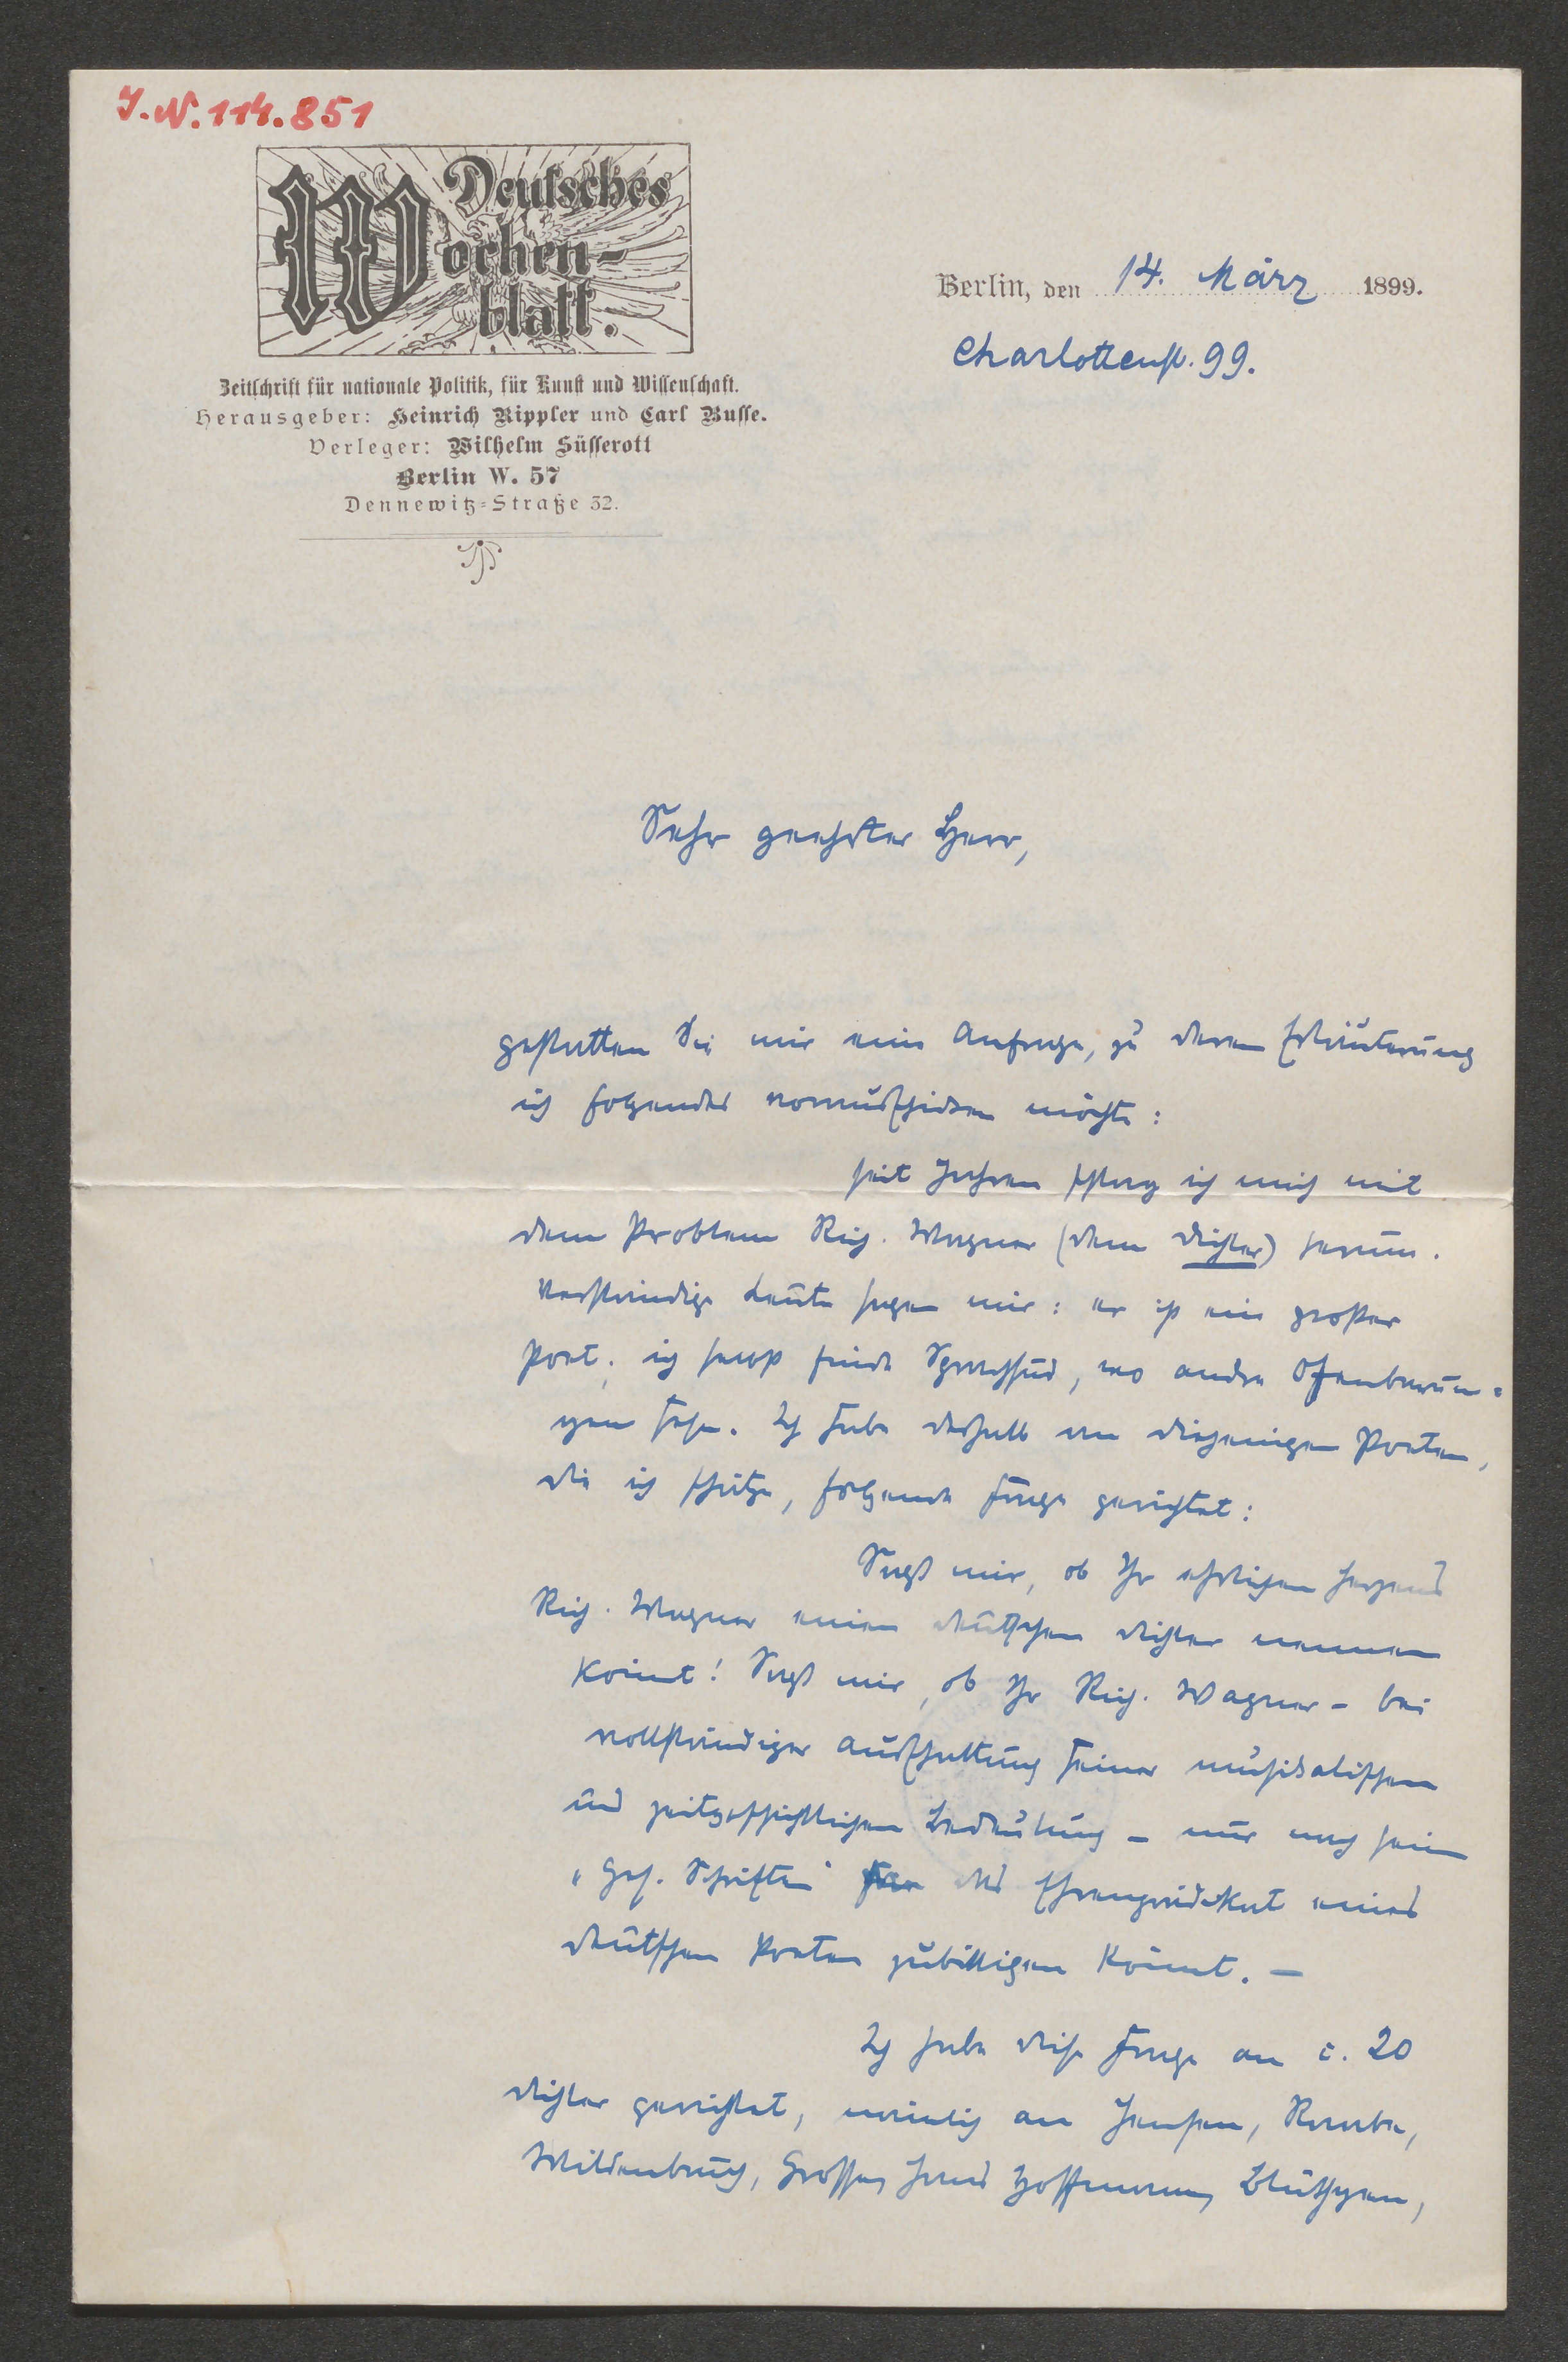 J.N. 114.851
Deutsches
Wochen-
blatt.
Zeitschrift für nationale Politik, für Kunst und Wissenschaft.
Herausgeber: Heinrich Rippler und Carl Busse.
Verleger: Wilhelm Süsserott
Berlin W. 57
Dennewitz-Straße 32.
Berlin, den 14. März 1899.
Charlottenst. 99.
Sehr geehrter Herr,
gestatten Sie mir eine Anfrage, zu deren Erläuterung
ich folgendes vorausschicken möchte:
seit Jahren schlag ich mich mit
dem Problem Rich. Wagner (dem Dichter) herum.
Verständige Leute sagen mir: er ist ein großer
Poet; ich selbst finde Sprachsud, wo andre Offenbarun-
gen sehn. Ich habe deshalb an diejenigen Poeten,
die ich schätze, folgende Frage gerichtet:
Sagt mir, ob Ihr ehrlichen Herzens
Rich. Wagner einen deutschen Dichter nennen
könnt! Sagt mir, ob Ihr Rich. Wagner – bei
vollständiger Ausschaltung seiner musikalischen
und zeitgeschichtlichen Bedeutung – nur nach sein
"Ges. Schriften" das Ehrenprädikat eines
deutschen Poeten zubilligen könnt. –
Ich habe diese Frage an c. 20
Dichter gerichtet, nämlich an Jensen, Raabe,
Wildenbruch, Grosse, Hans Hoffmann, Blüthgen,